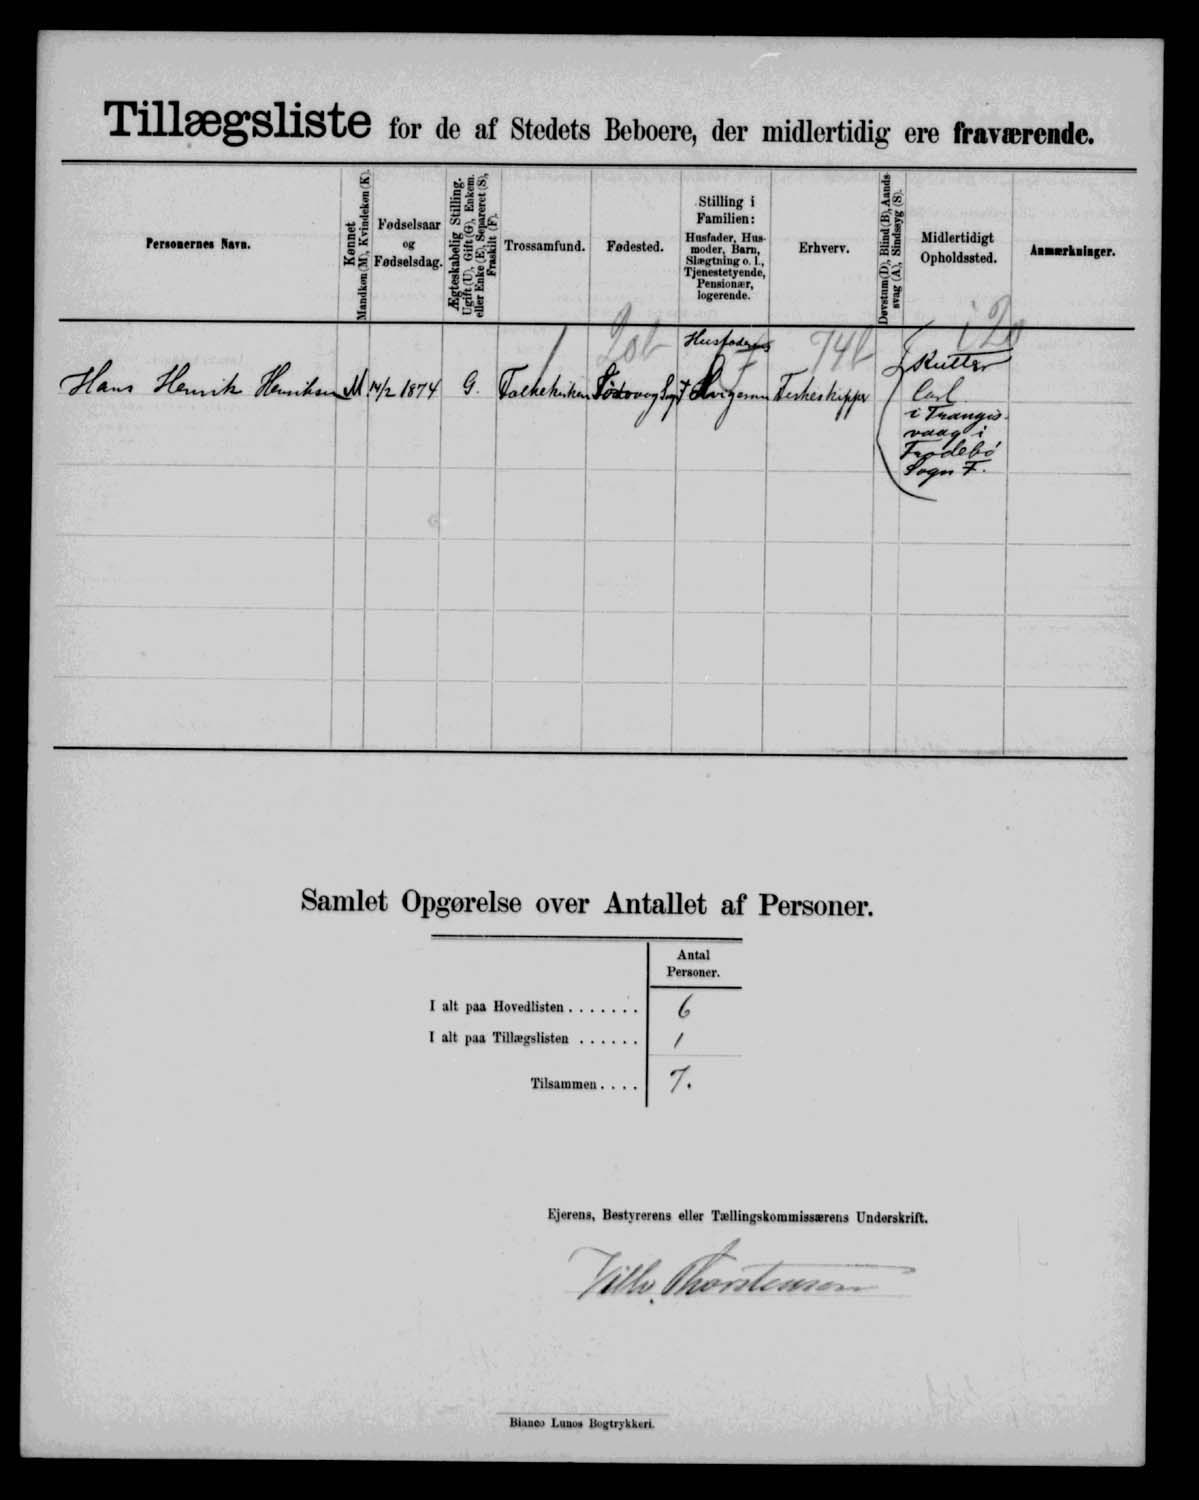 Tillægsliste for de af Stedets Beboere, der midlertidig ere fraværende.
Personernes Navn.
Kønnet
Mandkøn (M), Kvindekøn (K).
Fødselsaar
og
Fødselsdag.
Ægteskabelig Stilling.
Ugift (U), Gift (G), Enkem.
eller Enke (E), Separeret (S),
Fraskilt (F).
Trossamfund.
Fødested.
Stilling i
Familien:
Husfader, Hus-
moder, Barn,
Slægtning o. l.,
Tjenestetyende,
Pensionær,
logerende.
Erhverv.
Døvstum (D), Blind (B), Aands-
svag (A), Sindssyg (S).
Midlertidigt
Opholdssted.
Anmærkninger.
Hans Henrik Henriksen M. 14/2 1874 G. Folkekirken Sogn F Svigersøn Fiskeskipper
Husfaderens
Kutter
Carl
i Trangis-
vaag i
Frodebø
Sogn F.
Samlet Opgørelse over Antallet af Personer.
Antal
Personer.
I alt paa Hovedlisten . . . . . . . 6
I alt paa Tillægslisten . . . . . . 1
Tilsammen . . . . 7.
Ejerens, Bestyrerens eller Tællingskommissærens Underskrift.
Vilh. Thorstensen
Bianco Lunos Bogtrykkeri.